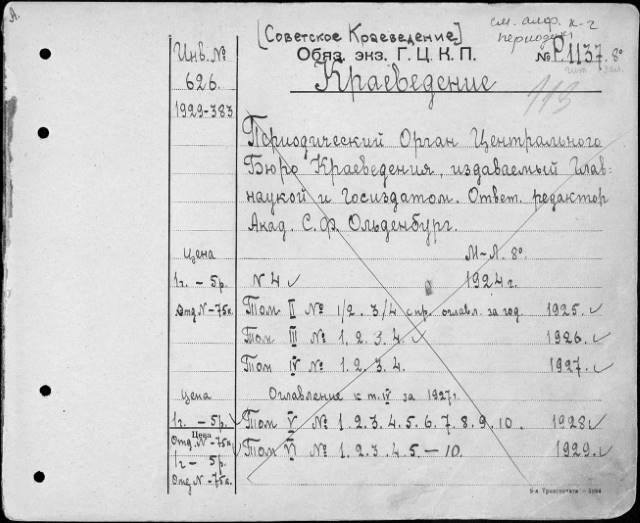 А.
см. алф. к-г
[Советское Краеведение]
Инв. №
Обяз. экз. Г. Ц. К. П.
№ Р. 1137. 8°
626.
Краеведение
1929-383
113
Периодический Орган Центрального
Бюро Краеведения, издаваемый Глав-
наукой и Госиздатом. Ответ. редактор
Акад. С. Ф. Ольденбург.
Цена
М-Л. 8°
1 г. - 5 р.
N 4 ✓
1924 г.
Отд N - 75 к.
Том II № 1/2. 3/4 с пр. оглавл. за год. 1925. ✓
Том III № 1. 2. 3. 4 ✓ 1926. ✓
Том IV № 1. 2. 3. 4. 1927. ✓
Цена
Оглавление к т. IV за 1927 г.
1 г. - 5 р. ✓
Том V № 1. 2. 3. 4. 5. 6. 7. 8. 9. 10. 1928 ✓
Цена
Отд. N - 75 к. ✓
Том VI № 1. 2. 3. 4. 5 - 10. 1929. ✓
1 г - 5 р.
Отд N - 75 к.